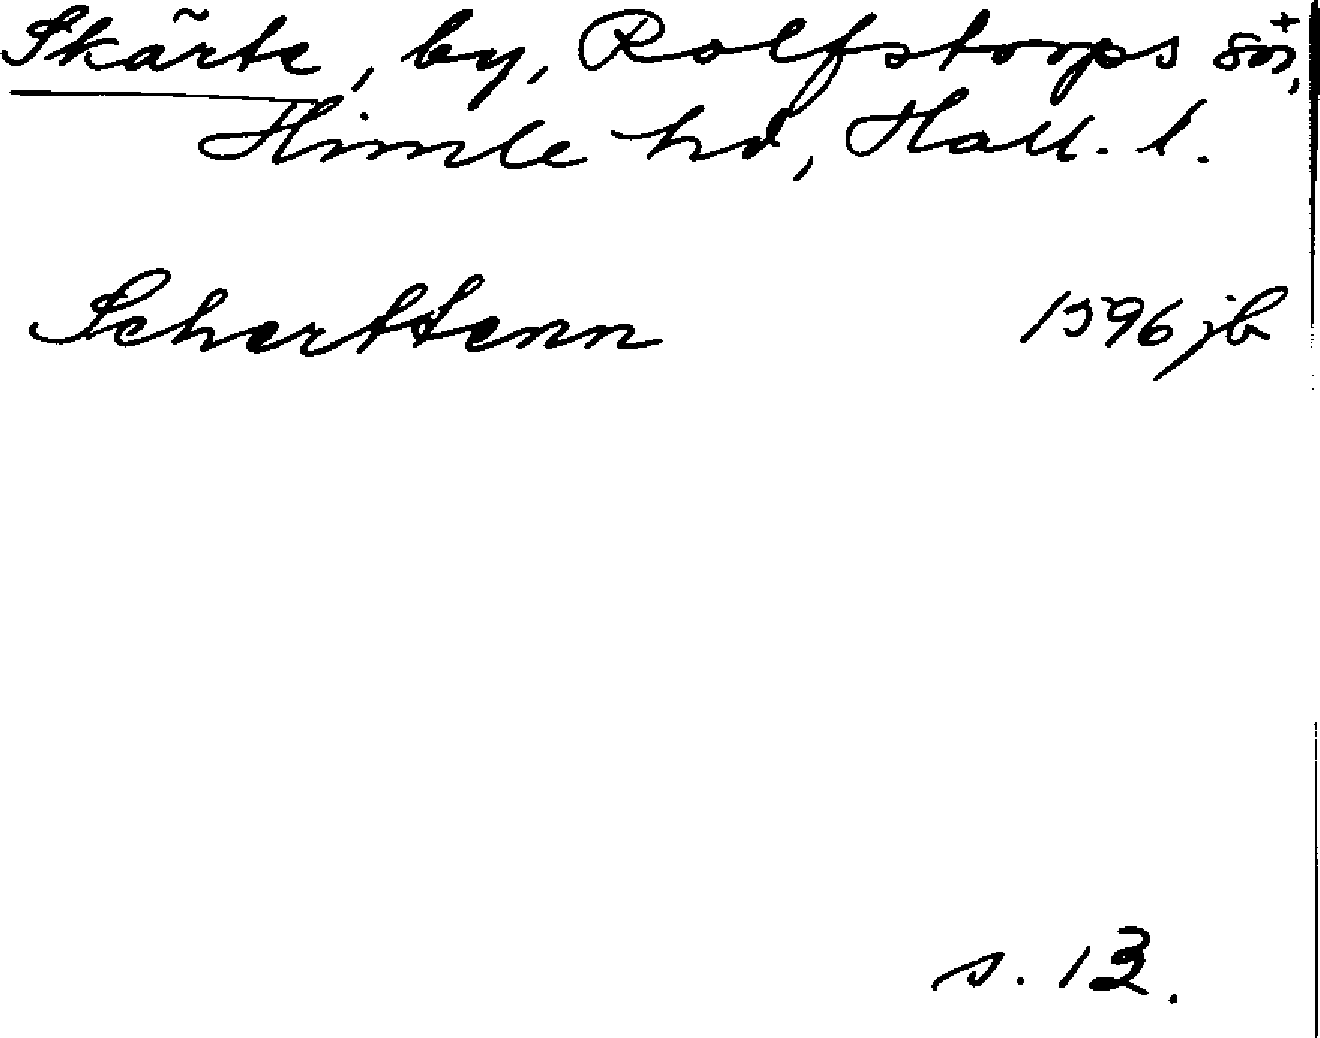 Skärte, by, Rolfstorps sn,
Himle hd, Hall. l.
Scharttenn 1596 jb
s. 13.